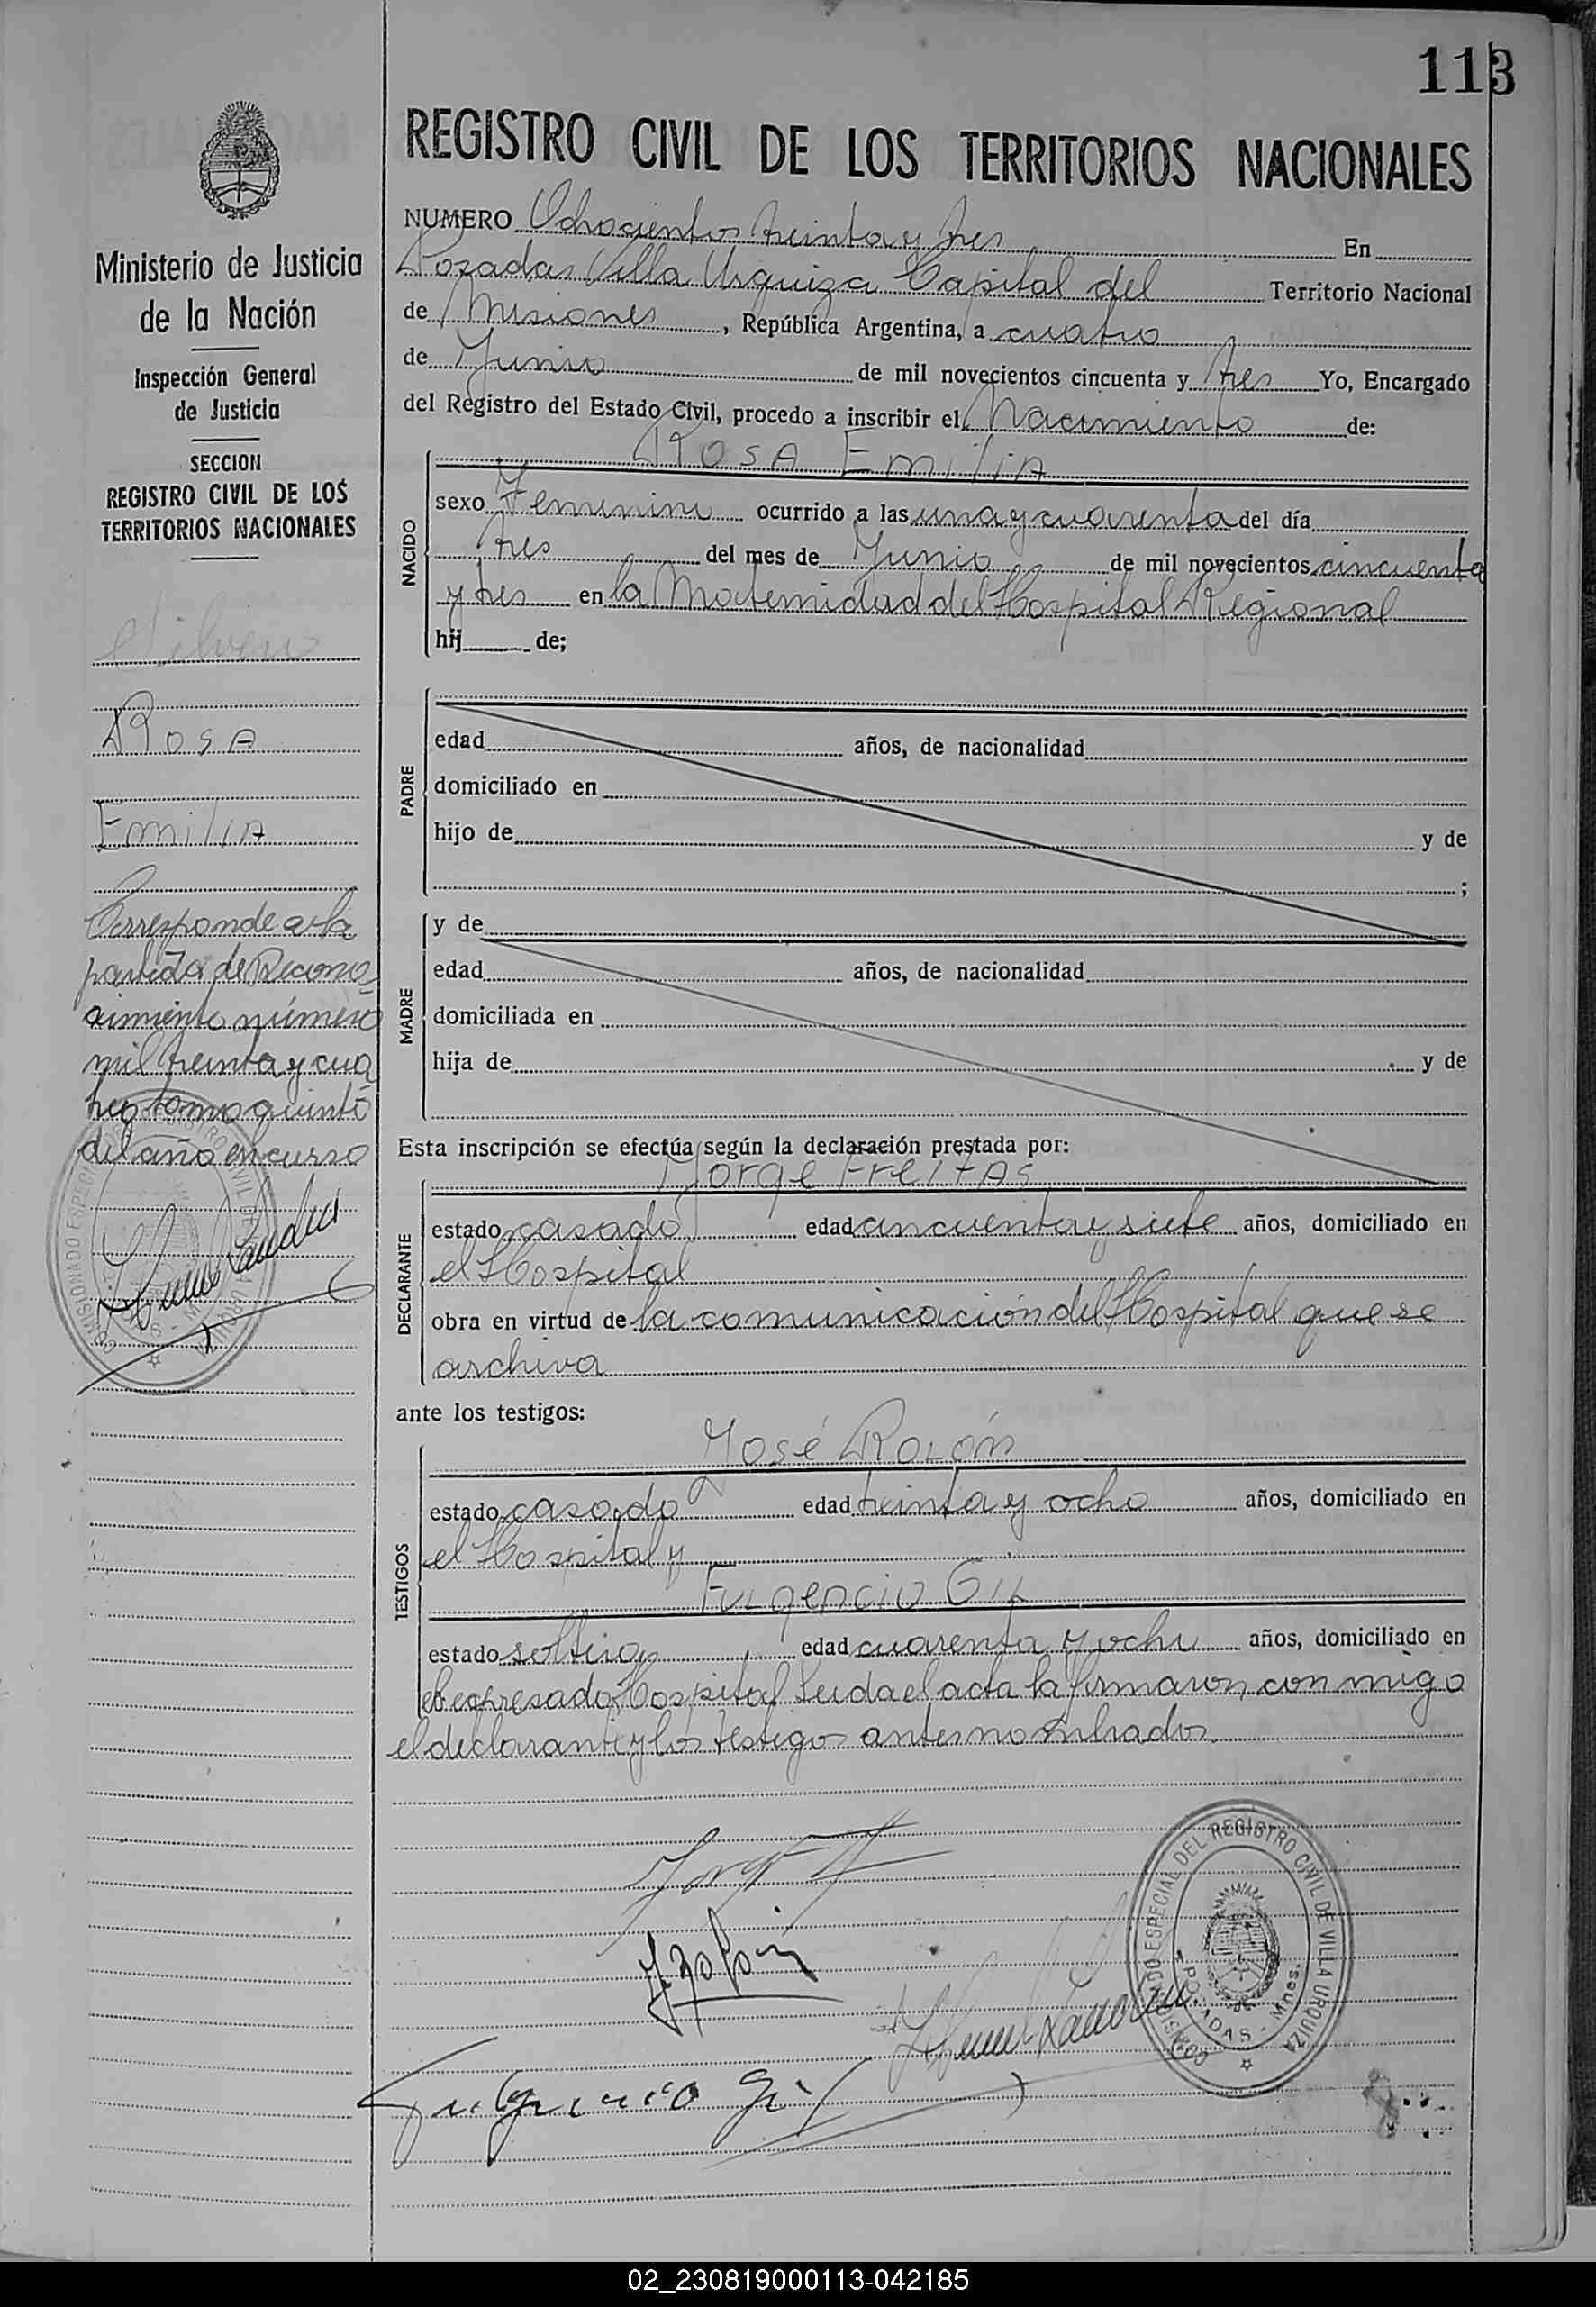 113
REGISTRO CIVIL DE LOS TERRITORIOS NACIONALES
Ministerio de Justicia
de la Nación
Inspección General
de Justicia
SECCION
REGISTRO CIVIL DE LOS
TERRITORIOS NACIONALES
Rosa
Emilia
Corresponde a la
partida de Recono
simiento número
mil treinta y cua
tro tomo quinto
del año en curso
NUMERO Ochocientos treinta y tres En
Posadas Villa Urquiza Capital del Territorio Nacional
de Misiones, República Argentina, a cuatro
de Junio de mil novecientos cincuenta y tres Yo, Encargado
del Registro del Estado Civil, procedo a inscribir el Nacimiento de:
Rosa Emilia
NACIDO
sexo Femenino ocurrido a las una y cuarenta del día
tres del mes de Junio de mil novecientos cincuenta
y tres en la Maternidad del Hospital Regional
hij de;
PADRE
edad años, de nacionalidad
domiciliado en
hijo de y de
;
MADRE
y de
edad años, de nacionalidad
domiciliada en
hija de y de
Esta inscripción se efectúa según la declaración prestada por:
Jorge Freitas
DECLARANTE
estado casado edad cincuenta y siete años, domiciliado en
el Hospital
obra en virtud de la comunicación del Hospital que se
archiva
ante los testigos:
José Rolón
TESTIGOS
estado casado edad treinta y ocho años, domiciliado en
el Hospital y
Fulgencio Gil
estado soltero edad cuarenta y ocho años, domiciliado en
el expresado Hospital Leida el acta la firmaron con migo
el declarante y los testigos antes nombrados.
J. Rolón
Fulgencio Gil
COMISIONADO ESPECIAL DEL REGISTRO CIVIL DE VILLA URQUIZA
POSADAS - Mnes.
02_230819000113-042185